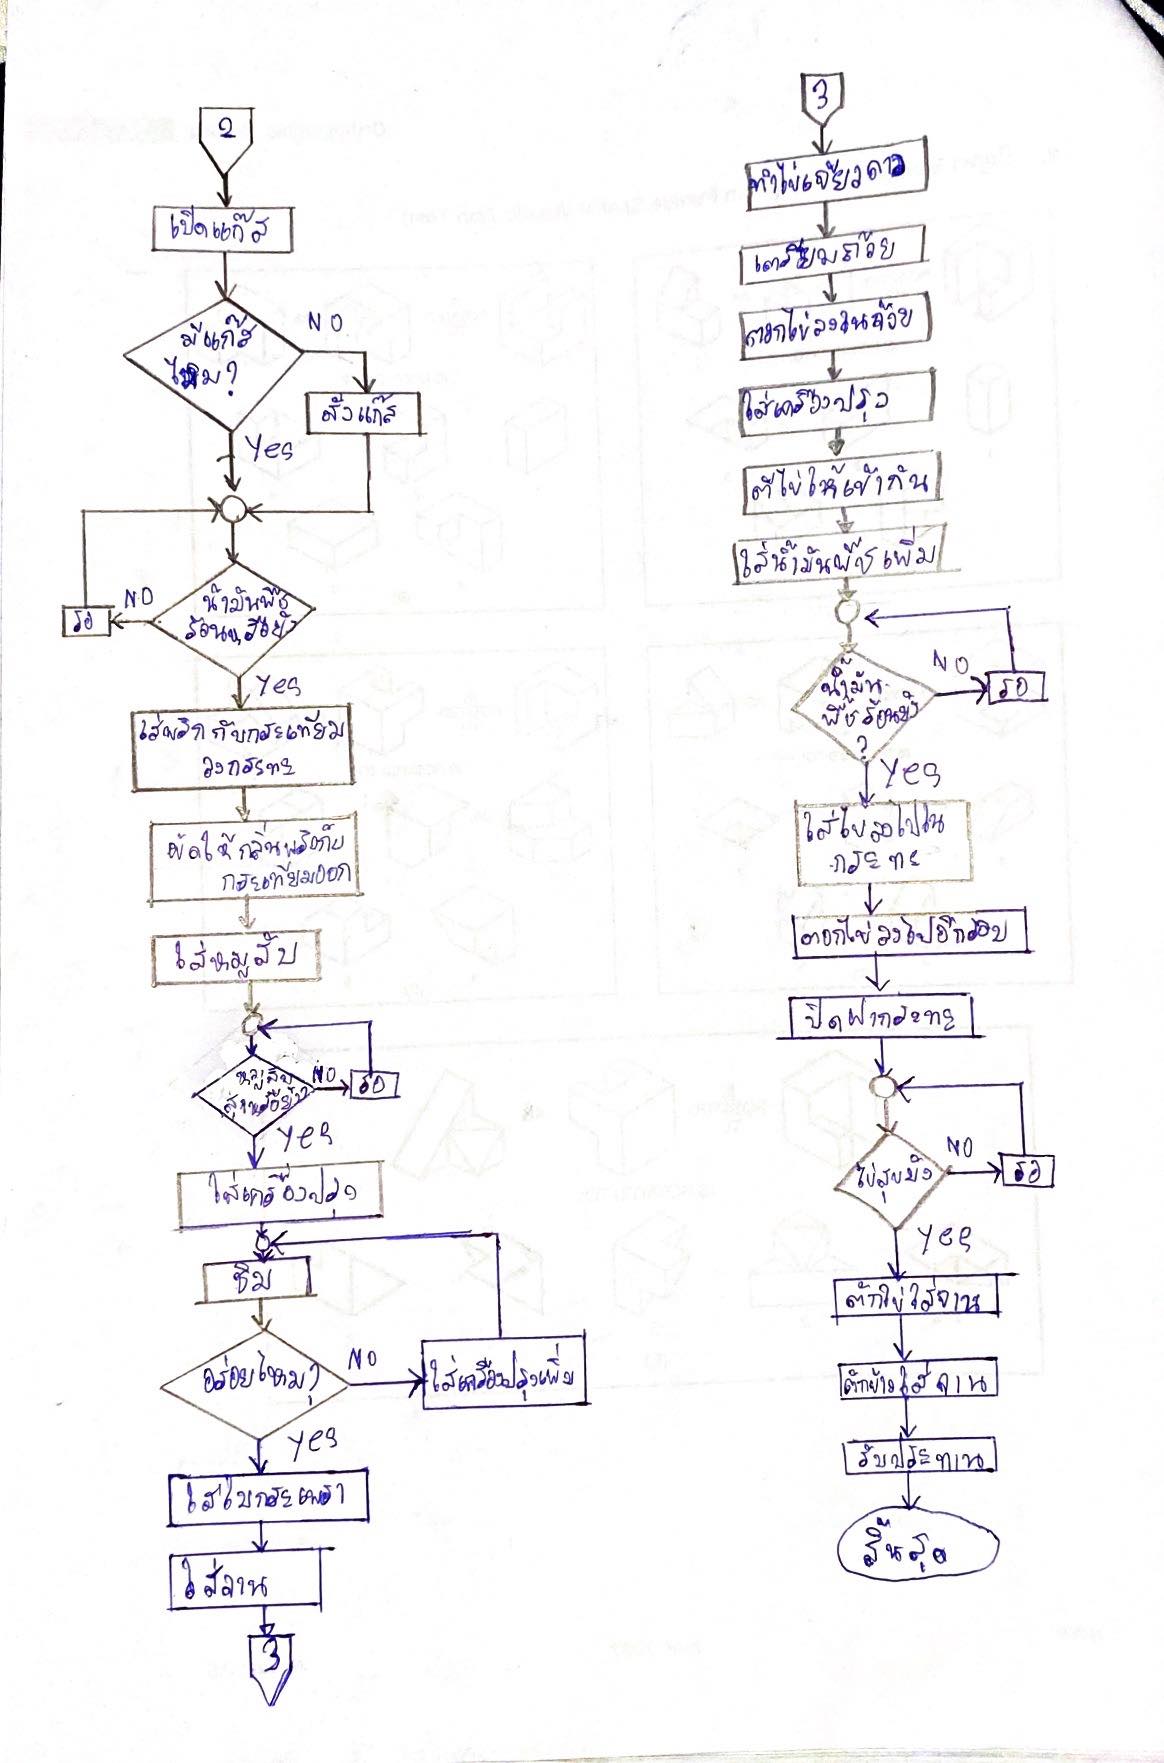 2
เปิดแก๊ส
มีแก๊ส
ไหม?
NO
สั่งแก๊ส
Yes
น้ำมันพืช
ร้อนหรือยัง
NO
รอ
Yes
ใส่พริกกับกระเทียม
ลงกระทะ
ผัดให้กลิ่นพริกกับ
กระเทียมออก
ใส่หมูสับ
หมูสับ
สุกหรือยัง?
NO
รอ
Yes
ใส่เครื่องปรุง
ชิม
อร่อยไหม?
NO
ใส่เครื่องปรุงเพิ่ม
Yes
ใส่ใบกระเพรา
ใส่จาน
3
3
ทำไข่เจียวดาว
เตรียมถ้วย
ตอกไข่ลงในถ้วย
ใส่เครื่องปรุง
ตีไข่ให้เข้ากัน
ใส่น้ำมันพืชเพิ่ม
น้ำมัน
พืชร้อนยัง
?
NO
รอ
Yes
ใส่ไข่ลงไปใน
กระทะ
ตอกไข่ลงไปอีกรอบ
ปิดฝากระทะ
ไข่สุขยัง
NO
รอ
Yes
ตักไข่ใส่จาน
ตักข้าวใส่จาน
รับประทาน
สิ้นสุด